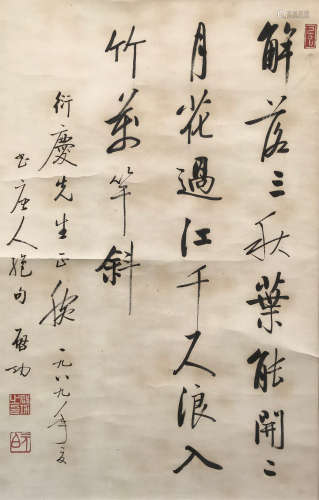 解落三秋葉能開二
月花過江千尺浪入
竹萬竿斜
衍慶先生正腕 一九八九年夏
書唐人絕句 啟功